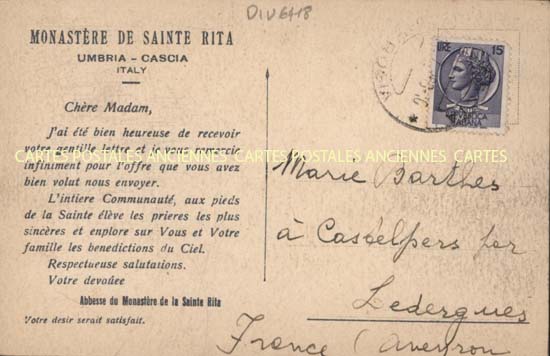 DIV6418
MONASTÈRE DE SAINTE RITA
UMBRIA - CASCIA
ITALY
Chère Madam,
J'ai été bien heureuse de recevoir
votre gentille lettre et je vous remercie
infiniment pour l'offre que vous avez
bien volut nous envoyer.
L'intiere Communauté, aux pieds
de la Sainte élève les prieres les plus
sincères et enplore sur Vous et Votre
famille les benedictions du Ciel.
Respectueuse salutations.
Votre devouée
Abbesse du Monastère de la Sainte Rita
Votre desir serait satisfait.
CARTES POSTALES ANCIENNES CARTES POSTALES ANCIENNES CARTES
LIRE 15
REPUBBLICA
ITALIANA
Marie Barthes
à Castelpers par
Ledergues
France (Aveyron